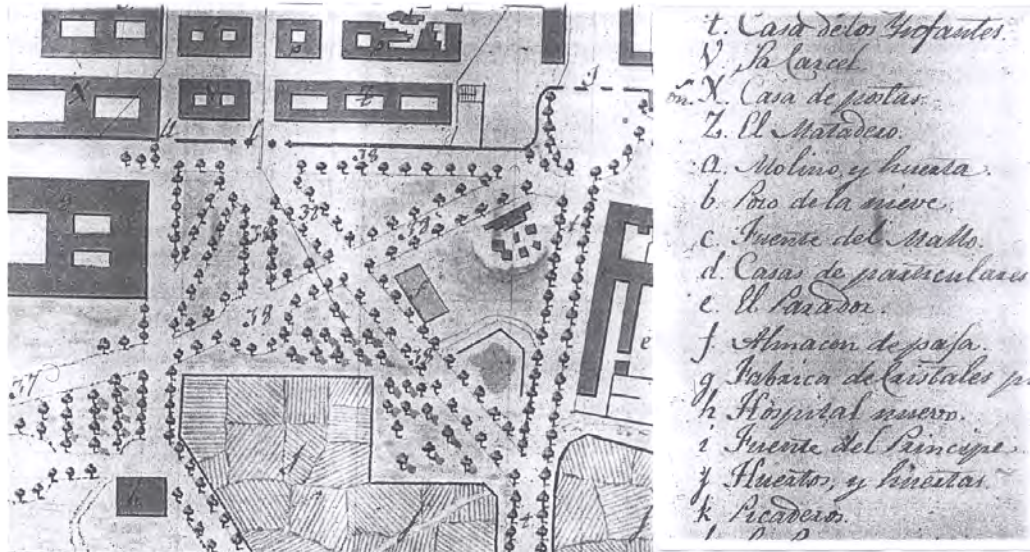 t. Casa de los Ynfantes.
V. La Carcel
X. Casa de postas.
Z. El Matadero.
a. Molino, y huerta
b. Pozo de la nieve.
c. Fuente del Mallo.
d. Casas de particulares
e. El Parador.
f. Almacen de paja.
g. Fabrica de Cristales
h. Hospital nuevo.
i. Fuente del Principe.
j Huertos, y huertas
k Picaderos.
X
Z
38
38
38
38
38
38
37
e
k